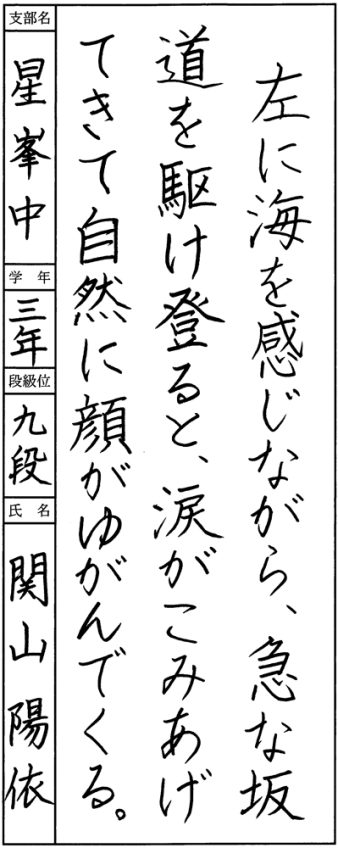 左に海を感じながら、急な坂
道を駆け登ると、涙がこみあげ
てきて自然に顔がゆがんでくる。
支部名
星峯中
学年
三年
段級位
九段
氏名
関山陽依